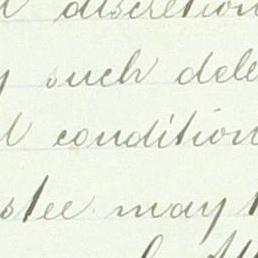 discretion
such dele
condition
stee may